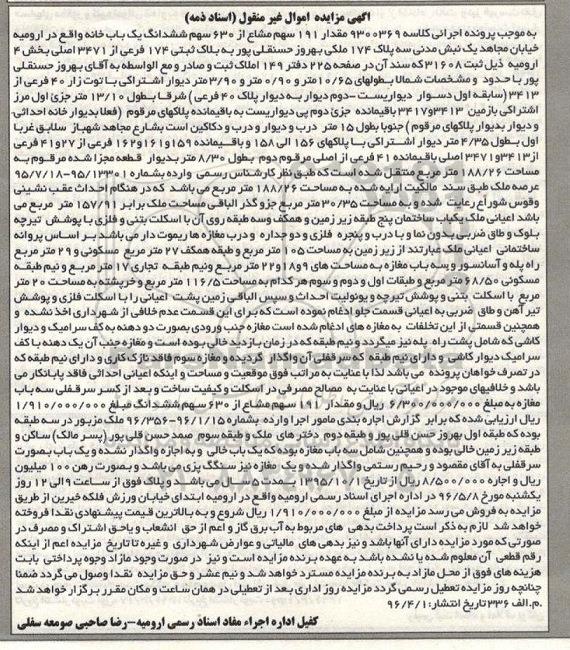 آگهی مزایده اموال غیر منقول (اسناد ذمه)
به موجب پرونده اجرائی کلاسه ۹۳۰۰۳۶۹ مقدار ۱۹۱ سهم مشاع از ۶۳۰ سهم ششدانگ یک باب خانه واقع در ارومیه
خیابان مجاهد یک نبش مدنی سه پلاک ۱۷۴ ملکی بهروز حسنقلی پور به پلاک ثبتی ۱۷۴ فرعی از ۳۴۷۱ اصلی بخش ۴
ارومیه ذیل ثبت ۳۱۶۰۸ که سند آن در صفحه ۲۲۵ دفتر ۱۴۹ املاک ثبت و صادر و مع الواسطه به آقای بهروز حسنقلی
پور با حدود و مشخصات شمالا بطولهای ۱۰/۶۵ متر و ۰/۹۰ متر و ۳/۹۰ متر دیوار اشتراکی با توت زار ۴۰ فرعی از
۳۴۱۳ (سابقه اول دسوار دیواریست -دوم دیوار به دیوار پلاک ۴۰ فرعی ) شرقا بطول ۱۳/۱۰ متر جزئ اول مرز
اشتراکی بازمین ۳۴۱۳و۳۴۱۷ باقیمانده جزئ دوم پی دیواریست به باقیمانده پلاکهای مرقوم (فعلا بدیوار خانه احداثی
و دیوار بدیوار پلاکهای مرقوم ) جنوبا بطول ۱۵ متر درب و دیوار و درب و دکاکین است بشارع مجاهد شهباز سلابق غربا
اول بطول ۴/۳۵ متر دیوار اشتراکی با پلاکهای ۱۵۶ الی ۱۵۸ و باقیمانده ۱۵۹ و۱۶۱ و۱۶۲ فرعی از ۲۷ و۴۱ فرعی
از۳۴۱۳و۳۴۷۱ اصلی باقیمانده ۴۱ فرعی از اصلی مرقوم دوم بطول ۸/۳۰ متر بدیوار قطعه مجزا شده مرقوم به
مساحت ۱۸۸/۲۶ متر مربع منتقل شده است که طبق نظر کارشناس رسمی وارده بشماره ۹۵/۱۳۳۰۱-۹۵/۷/۱۸
عرصه ملک طبق سند مالکیت ارایه شده به مساحت ۱۸۸/۲۶ متر مربع می باشد که در هنگام احداث عقب نشینی
وقوس شوراع رعایت شده و به مساحت ۳۰/۳۵ متر مربع جزو گذر الباقی مساحت ملک برابر ۱۵۷/۹۱ متر مربع می
باشد اعیانی ملک یکباب ساختمان پنج طبقه زیر زمین و همکف وسه طبقه روی آن با اسکلت بتنی و فلزی با پوشش تیرچه
بلوک و طاق ضربی بدون نما و با درب و پنجره فلزی و دو جداره و درب مغازه ها ریموت دار می باشد بر اساس پروانه
ساختمانی اعیانی ملک عبارتند از زیر زمین به مساحت ۱۰۵ متر مربع و طبقه همکف ۲۷ متر مربع مسکونی و ۲۹ متر مربع
راه پله و آسانسور و سه باب مغازه به مساحت های ۹و۱۸و۲۲ متر مربع ونیم طبقه تجاری ۱۷ متر مربع و نیم طبقه
مسکونی ۶۸/۵۰ متر مربع و طبقات اول و دوم و سوم هر کدام به مساحت ۱۱۶/۵ متر مربع و خرپشته به مساحت ۲۰ متر
مربع با اسکلت بتنی و پوشش تیرچه و یونولیت احداث و سپس الباقی زمین پشت اعیانی را با اسکلت فلزی و پوشش
تیر آهن و طاق ضربی به اعیانی قسمت جلو ادغام نموده است که برای این قسمت عدم خلافی از شهرداری اخذ نشده و
همچنین قسمتی از این تخلفات به مغازه های ادغام شده است مغازه جنب ورودی بصورت دو دهنه به کف سرامیک و دیوار
کاشی که شامل پشت راه پله نیز میگردد و نیم طبقه که در زمان بازدید خالی بوده است و مغازه جنب آن یک دهنه با کف
سرامیک دیوار کاشی و دارای نیم طبقه که سرقفلی آن واگذار گردیده و مغازه سوم فاقد نازک کاری و دارای نیم طبقه که
در تصرف خواهان پرونده می باشد لذا با عنایت به مراتب فوق موقعیت و مساحت و اینکه اعیانی احداثی فاقد پایانکار می
باشد و خلافیهای موجود در اعیانی با عنایت به مصالح مصرفی در اسکلت و کیفیت ساخت و بعد از کسر سرقفلی سه باب
مغازه به مبلغ ۶/۳۰۰/۰۰۰/۰۰۰ ریال و مقدار ۱۹۱ سهم مشاع از ۶۳۰ سهم ششدانگ مبلغ ۱/۹۱۰/۰۰۰/۰۰۰
ریال ارزیابی شده که برابر گزارش اجاره بندی مامور اجرا وارده بشماره ۹۶/۱/۱۵-۹۶/۳۵۶ ملک مزبور در سه طبقه
بوده که طبقه اول بهروز حسن قلی پور و طبقه دوم دختر های ملک و طبقه سوم مهدی حسن قلی پور (پسر مالک) ساکن و
طبقه زیر زمین خالی بوده و همچنین شامل سه باب مغازه بوده که یک باب خالی و به اجازه واگذار نشده و یک باب بصورت
سرقفلی به آقای مقصود و رحیم رستمی واگذار شده و یک مغازه نیز سنگ پزی می باشد و بصورت رهن ۱۰۰ میلیون
ریال و اجاره ۸/۵۰۰/۰۰۰ ریال از تاریخ ۱۳۹۵/۱۰/۱ به مدت یک سال می باشد و پلاک فوق از ساعت ۹ الی ۱۲ روز
یکشنبه مورخ ۹۶/۵/۸ در اداره اجرای اسناد رسمی ارومیه واقع در ارومیه ابتدای خیابان ورزش فلکه خیرین از طریق
مزایده به فروش می رسد مزایده از مبلغ ۱/۹۱۰/۰۰۰/۰۰۰ ریال شروع و به بالاترین قیمت پیشنهادی نقدا فروخته
خواهد شد لازم به ذکر است پرداخت بدهی های مربوط به آب برق گاز و اعم از حق انشعاب و یاحق اشتراک و مصرف در
صورتی که مورد مزایده دارای آنها باشد و نیز بدهی های مالیاتی و عوارض شهرداری و غیره تا تاریخ مزایده اعم از اینکه
رقم قطعی آن معلوم شده یا نشده باشد به عهده برنده مزایده است و نیز در صورت وجود مازاد وجوه پرداختی بابت
هزینه های فوق از محل مازاد به برنده مزایده مسترد خواهد شد و نیم عشر و حق مزایده نقدا وصول می گردد ضمنا
چنانچه روز مزایده تعطیل رسمی گردد مزایده روز اداری بعد از تعطیلی در همان ساعت و مکان مقرر برگزار خواهد شد
.م.الف ۳۳۶ تاریخ انتشار: ۹۶/۴/۱
کفیل اداره اجراء مفاد اسناد رسمی ارومیه-رضا صاحبی صومعه سفلی